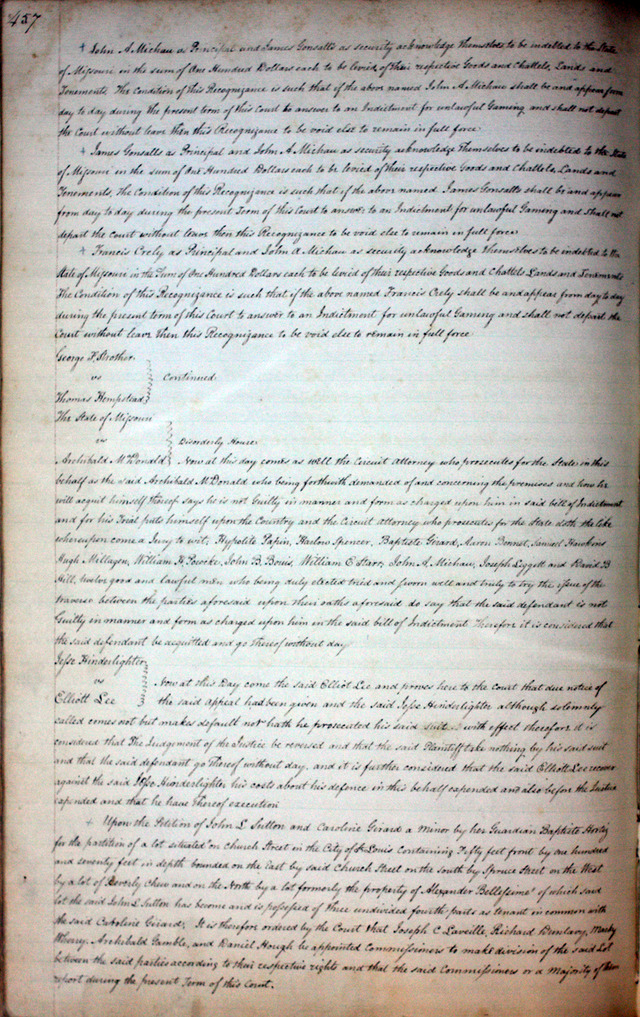 457
+ John A. Michau as Principal and James Gonsalls as security acknowledge themselves to be indebted to the State
of Missouri in the sum of One Hundred Dollars each to be levied of their respective Goods and Chattels, Lands and
Tenements. The Condition of this Recognizance is such that if the above named John A. Michau shall be and appear from
day to day during the present term of this Court to answer to an Indictment for unlawful Gaming and shall not depart
the Court without leave then this Recognizance to be void else to remain in full force
+ James Gonsalls as Principal and John A. Michau as security acknowledge themselves to be indebted to the State
of Missouri in the sum of One Hundred Dollars each to be levied of their respective Goods and Chattels, Lands and
Tenements, The Condition of this Recognizance is such that if the above named James Gonsalls shall be and appear
from day to day during the present Term of this Court to answer to an Indictment for unlawful Gaming and shall not
depart the court without leave then this Recognizance to be void else to remain in full force
+ Francis Crely as Principal and John A Michau as security acknowledge themselves to be indebted to the
State of Missouri in the Sum of One Hundred Dollars each to be levied of their respective Goods and Chattels Lands and Tenements
The Condition of this Recognizance is such that if the above named Francis Crely shall be and appear from day to day
during the present term of this Court to answer to an Indictment for unlawful Gaming and shall not depart the
Court without leave then this Recognizance to be void else to remain in full force
George F. Strother
vs
Continued
Thomas Hempstead
The State of Missouri
vs
Disorderly House
Archibald McDonald Now at this day comes as well the Circuit Attorney who prosecutes for the State in this
behalf as the said Archibald McDonald who being forthwith demanded of and concerning the premises and how he
will acquit himself thereof says he is not Guilty in manner and form as charged upon him in said bill of Indictment
and for his Trial puts himself upon the Country and the Circuit attorney who prosecutes for the State doth the like
whereupon come a Jury to wit; Hypolite Papin, Harlow Spencer, Baptiste Girard, Aaron Bonnet, Samuel Hawkins
Hugh Millagen, William H. Pococke, John B. Bouis, William C Starr, John A. Michau, Joseph Liggett and David B
Hill, twelve good and lawful men who being duly elected tried and sworn well and truly to try the issue of the
traverse between the parties aforesaid upon their oaths aforesaid do say that the said defendant is not
Guilty in manner and form as charged upon him in the said bill of Indictment Therefore it is considered that
the said defendant be acquitted and go thereof without day
Jesse Hinderlighter
vs
Now at this Day come the said Elliot Lee and proves here to the court that due notice of
Elliott Lee the said appeal had been given and the said Jesse Hinderlighter although solemnly
called comes not but makes default nor hath he prosecuted his said suit with effect therefore it is
considered that The Judgement of the Justice be reversed and that the said Plaintiff take nothing by his said suit
and that the said defendant go thereof without day. and it is further considered that the said Elliott Lee recover
against the said Jesse Hinderlighter his costs about his defence in this behalf expended and also before the Justice
expended and that he have thereof execution
+ Upon the Petition of John L Sutton and Caroline Girard a Minor by her Guardian Baptiste
for the partition of a lot situated on Church Street in the City of St Louis Containing Fifty feet front by one hundred
and seventy feet in depth bounded on the East by said Church Street on the south by Spruce Street on the West
by a lot of Beverly Chew and on the North by a lot formerly the property of Alexander Bellessime of which said
lot the said John L Sutton has become and is possessed of three undivided fourth parts as tenant in common with
the said Caroline Girard; It is therefore ordered by the Court that Joseph C Laveille, Richard Dunlavy, Macky
Wherry, Archibald Gamble, and Daniel Hough be appointed Commissioners to make division of the said Lot
between the said parties according to their respective rights and that the said Commissioners or a Majority of them
report during the present Term of this Court.